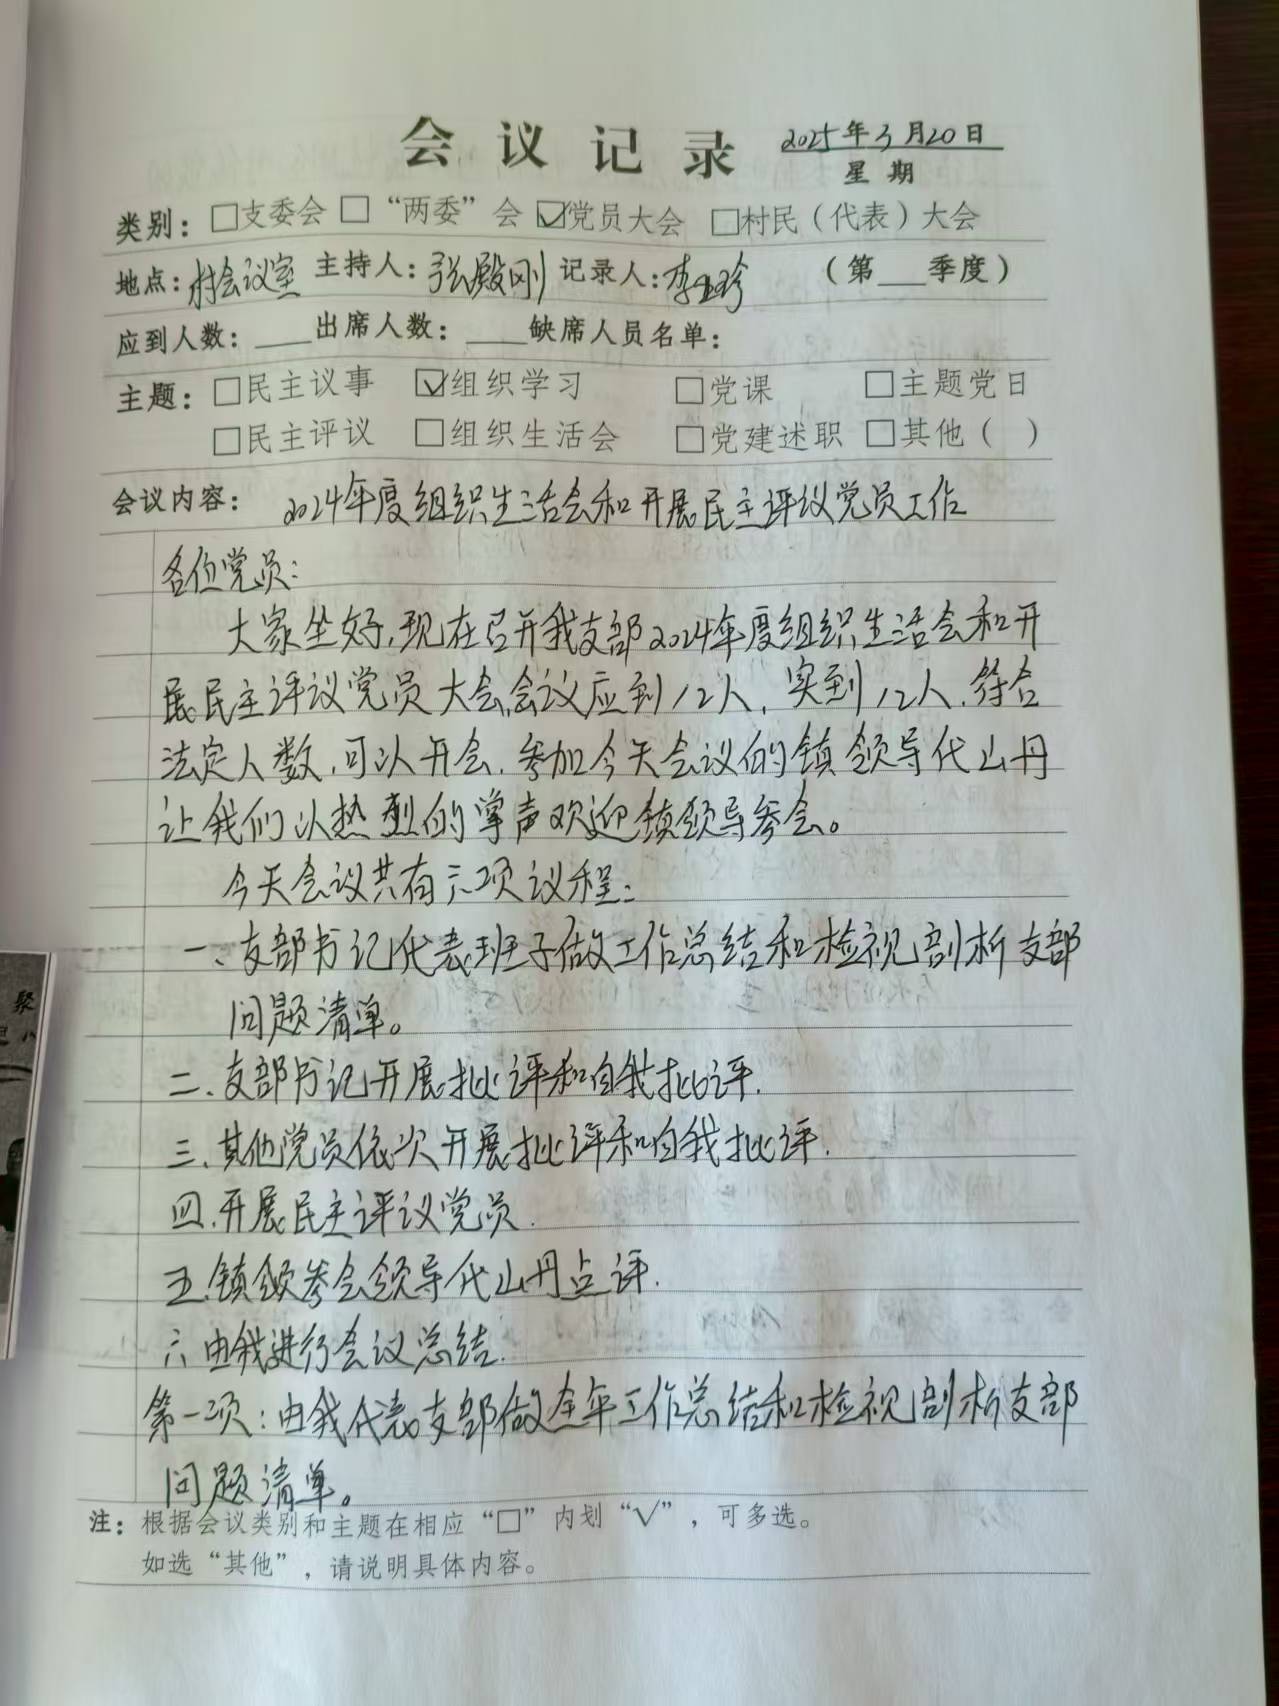 会议记录 2025年3月20日
星期
类别：□支委会 □“两委”会 ☑党员大会 □村民（代表）大会
地点：村会议室 主持人：张殿刚 记录人：李亚珍 （第___季度）
应到人数：____出席人数：____缺席人员名单：
主题：□民主议事 ☑组织学习 □党课 □主题党日
□民主评议 □组织生活会 □党建述职 □其他（ ）
会议内容：2024年度组织生活会和开展民主评议党员工作
各位党员：
大家坐好，现在召开我支部2024年度组织生活会和开
展民主评议党员大会，会议应到12人，实到12人，符合
法定人数，可以开会，参加今天会议的镇领导代山丹
让我们以热烈的掌声欢迎镇领导参会。
今天会议共有六项议程：
一、支部书记代表班子做工作总结和检视剖析支部
问题清单。
二、支部书记开展批评和自我批评.
三、其他党员依次开展批评和自我批评.
四、开展民主评议党员.
五.镇领参会领导代山丹点评.
六由我进行会议总结.
第一项：由我代表支部做全年工作总结和检视剖析支部
问题清单。
注：根据会议类别和主题在相应“□”内划“√”，可多选。
如选“其他”，请说明具体内容。
聚